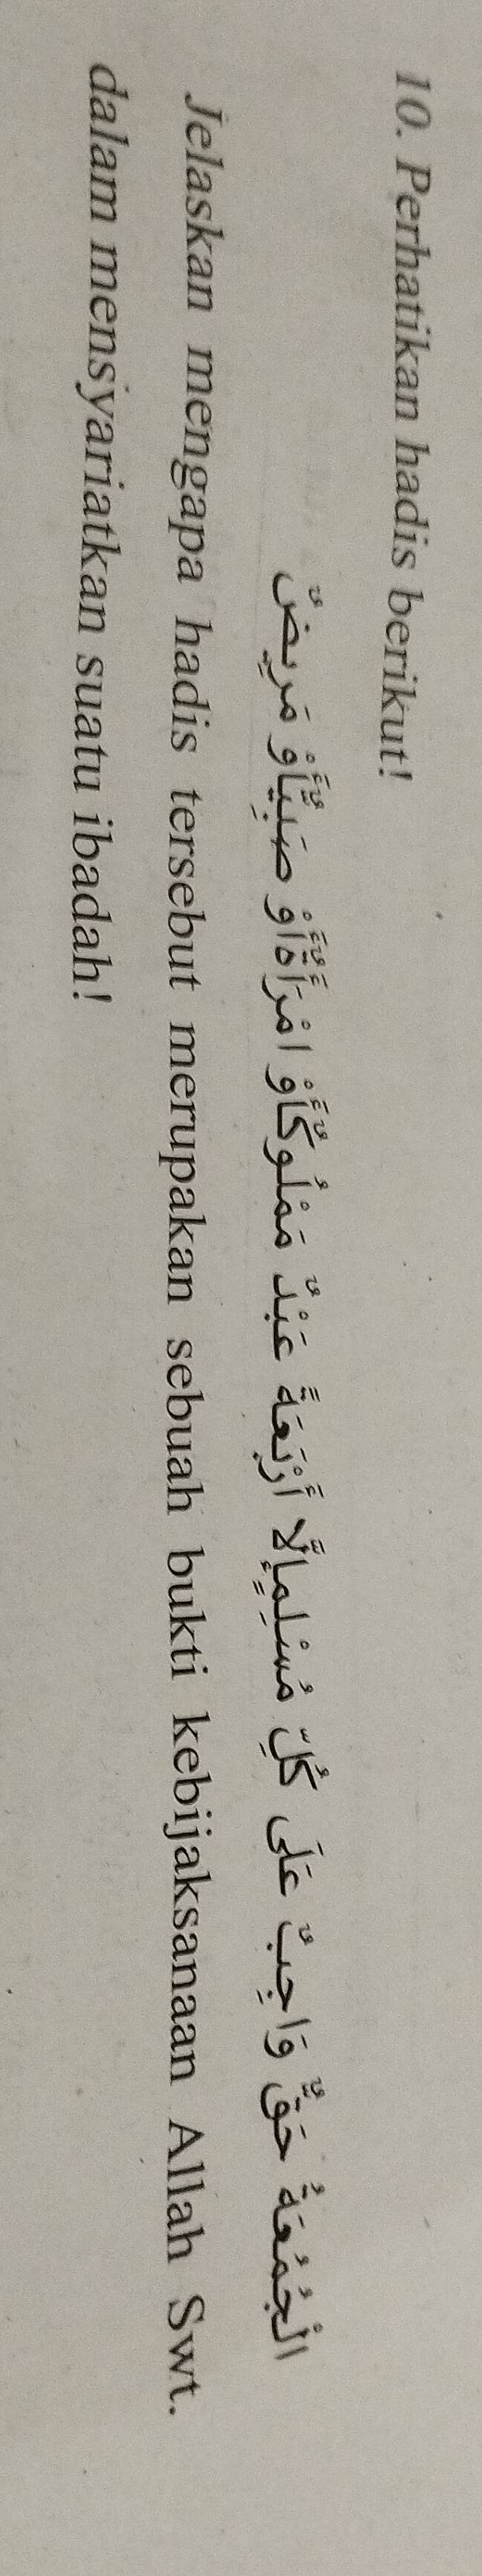 10. Perhatikan hadis berikut!
الْجُمُعَةُ حَقٌّ وَاجِبٌ عَلَى كُلِّ مُسْلِمٍإِلَّا أَرْبَعَةً عَبْدٌ مَمْلُوكٌأَوْ امْرَأَةٌأَوْ صَبِيٌّأَوْ مَرِيضٌ
Jelaskan mengapa hadis tersebut merupakan sebuah bukti kebijaksanaan Allah Swt.
dalam mensyariatkan suatu ibadah!